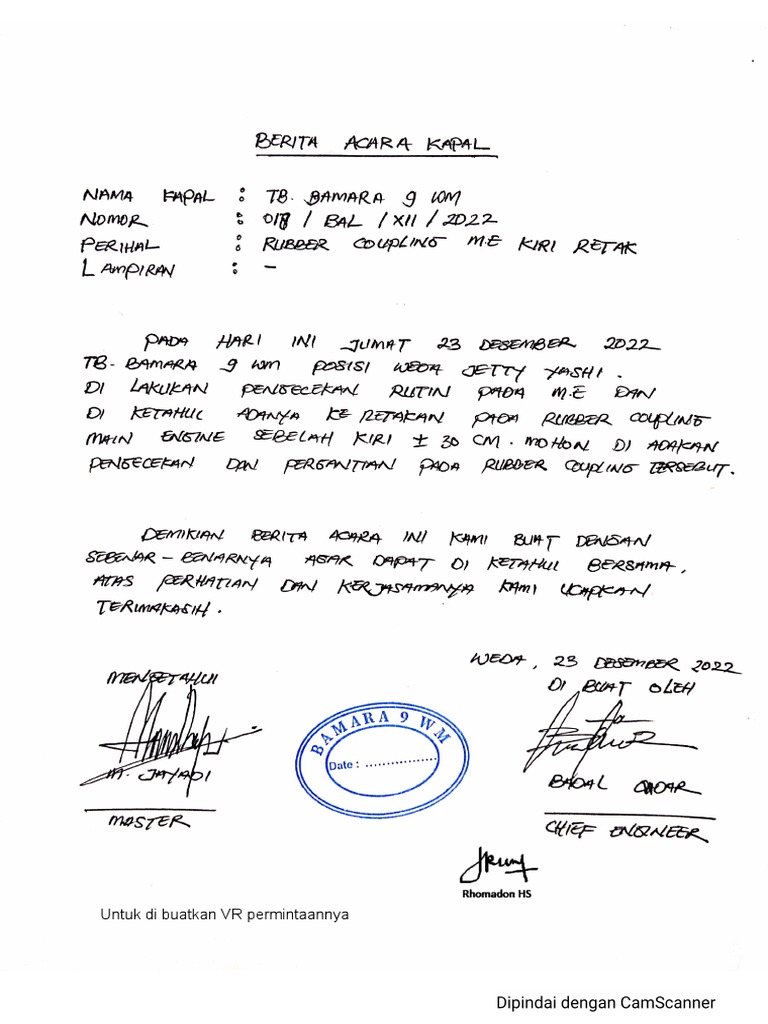 BERITA ACARA KAPAL
NAMA KAPAL : TB. BAMARA 9 WM
NOMOR : 018 / BAL / XII / 2022
PERIHAL : RUBBER COUPLING M.E KIRI RETAK
LAMPIRAN : -
PADA HARI INI JUMAT 23 DESEMBER 2022
TB. BAMARA 9 WM POSISI WEDA JETTY YASHI.
DI LAKUKAN PENGECEKAN RUTIN PADA M.E DAN
DI KETAHUI ADANYA KE RETAKAN PADA RUBBER COUPLING
MAIN ENGINE SEBELAH KIRI ± 30 CM. MOHON DI ADAKAN
PENGECEKAN DAN PERGANTIAN PADA RUBBER COUPLING TERSEBUT.
DEMIKIAN BERITA ACARA INI KAMI BUAT DENGAN
SEBENAR - BENARNYA AGAR DAPAT DI KETAHUI BERSAMA,
ATAS PERHATIAN DAN KERJASAMANYA KAMI UCAPKAN
TERIMAKASIH.
WEDA, 23 DESEMBER 2022
MENGETAHUI
DI BUAT OLEH
BAMARA 9 WM
Date : .................
M. JAYADI
MASTER
BADAL QODAR
CHIEF ENGINEER
Rhomadon HS
Untuk di buatkan VR permintaannya
Dipindai dengan CamScanner